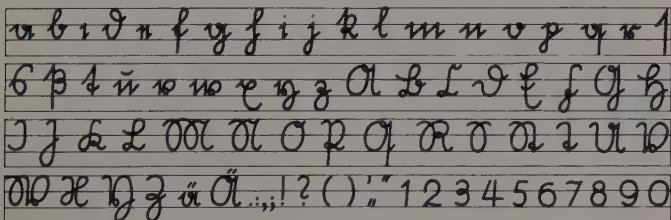 a b c d e f g h i j k l m n o p q r ſ
s ß t u v w x y z A B C D E F G H
I J K L M N O P Q R S St T U V
W X Y Z ä Ä .:,;! ? ( ) ' „ “ 1 2 3 4 5 6 7 8 9 0